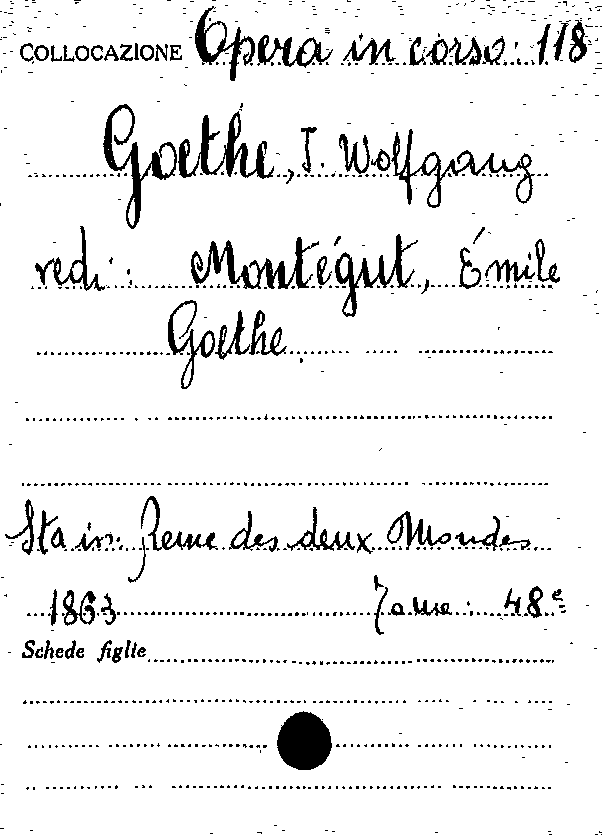 COLLOCAZIONE Opera in corso: 118
Goethe, J. Wolfgang
vedi: Montégut, Émile
Goethe.
Sta in: Revue des deux Mondes
1863 Tome: 48e
Schede figlie